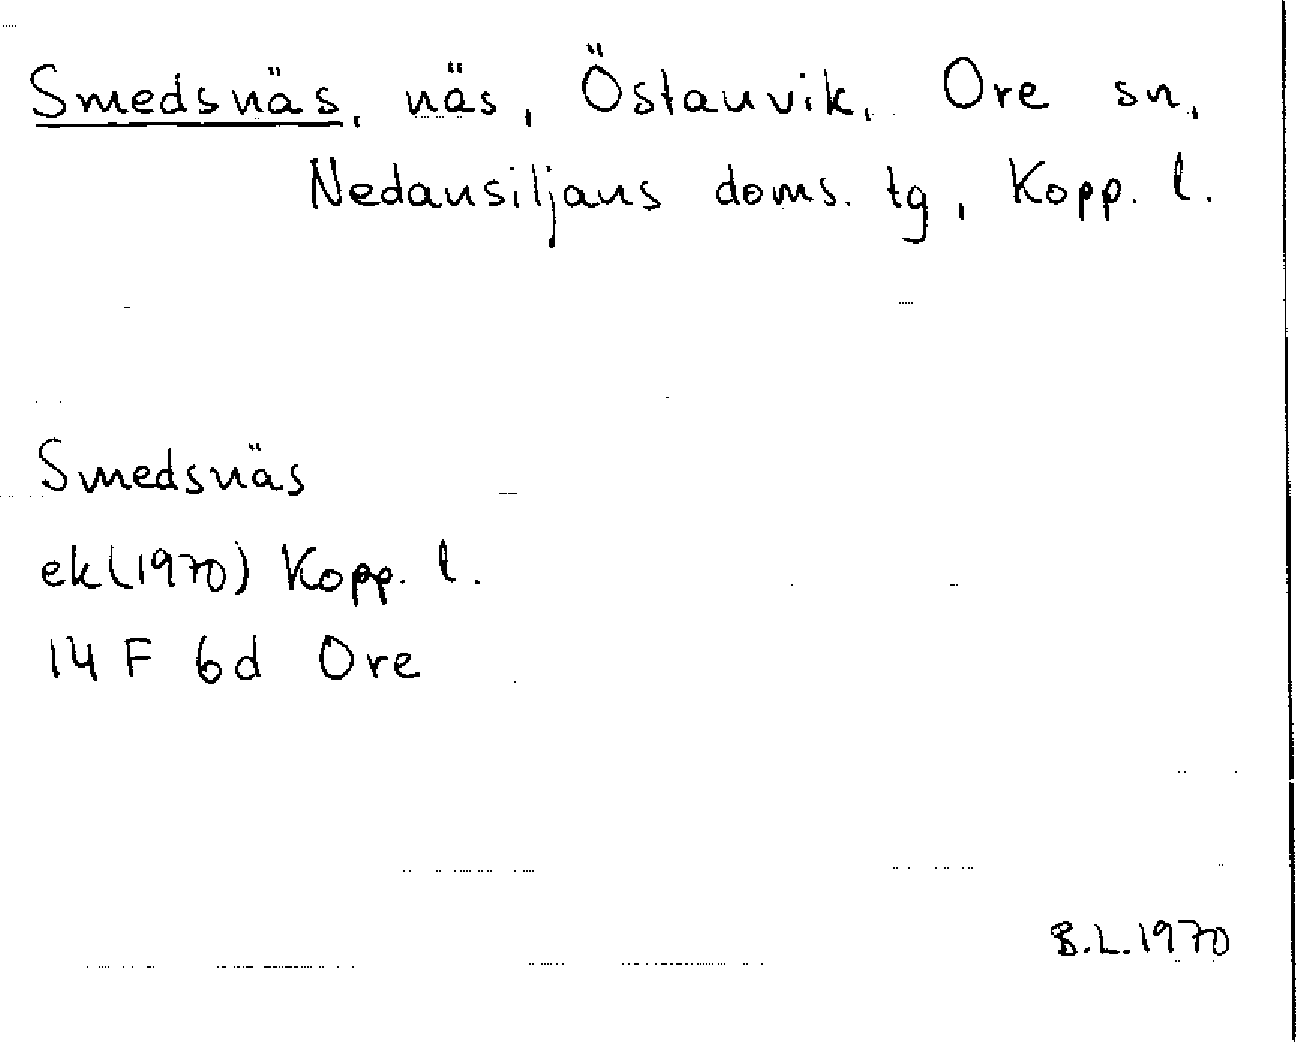 Smedsnäs, näs, Östanvik, Ore sn,
Nedansiljans doms. tg, Kopp. l.
Smedsnäs
ek(1970) Kopp. l.
14 F 6d Ore
B.L.1970